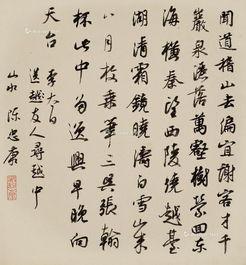 聞道稽山去偏宜謝客才千
巖泉灑落萬壑樹縈回東
海橫秦望西陵繞越臺
湖清霜鏡曉濤白雪山來
八月枚乘筆三吳張翰
杯此中多逸興早晚向
天台 李太白
送友人尋越中
山水 陳忠康